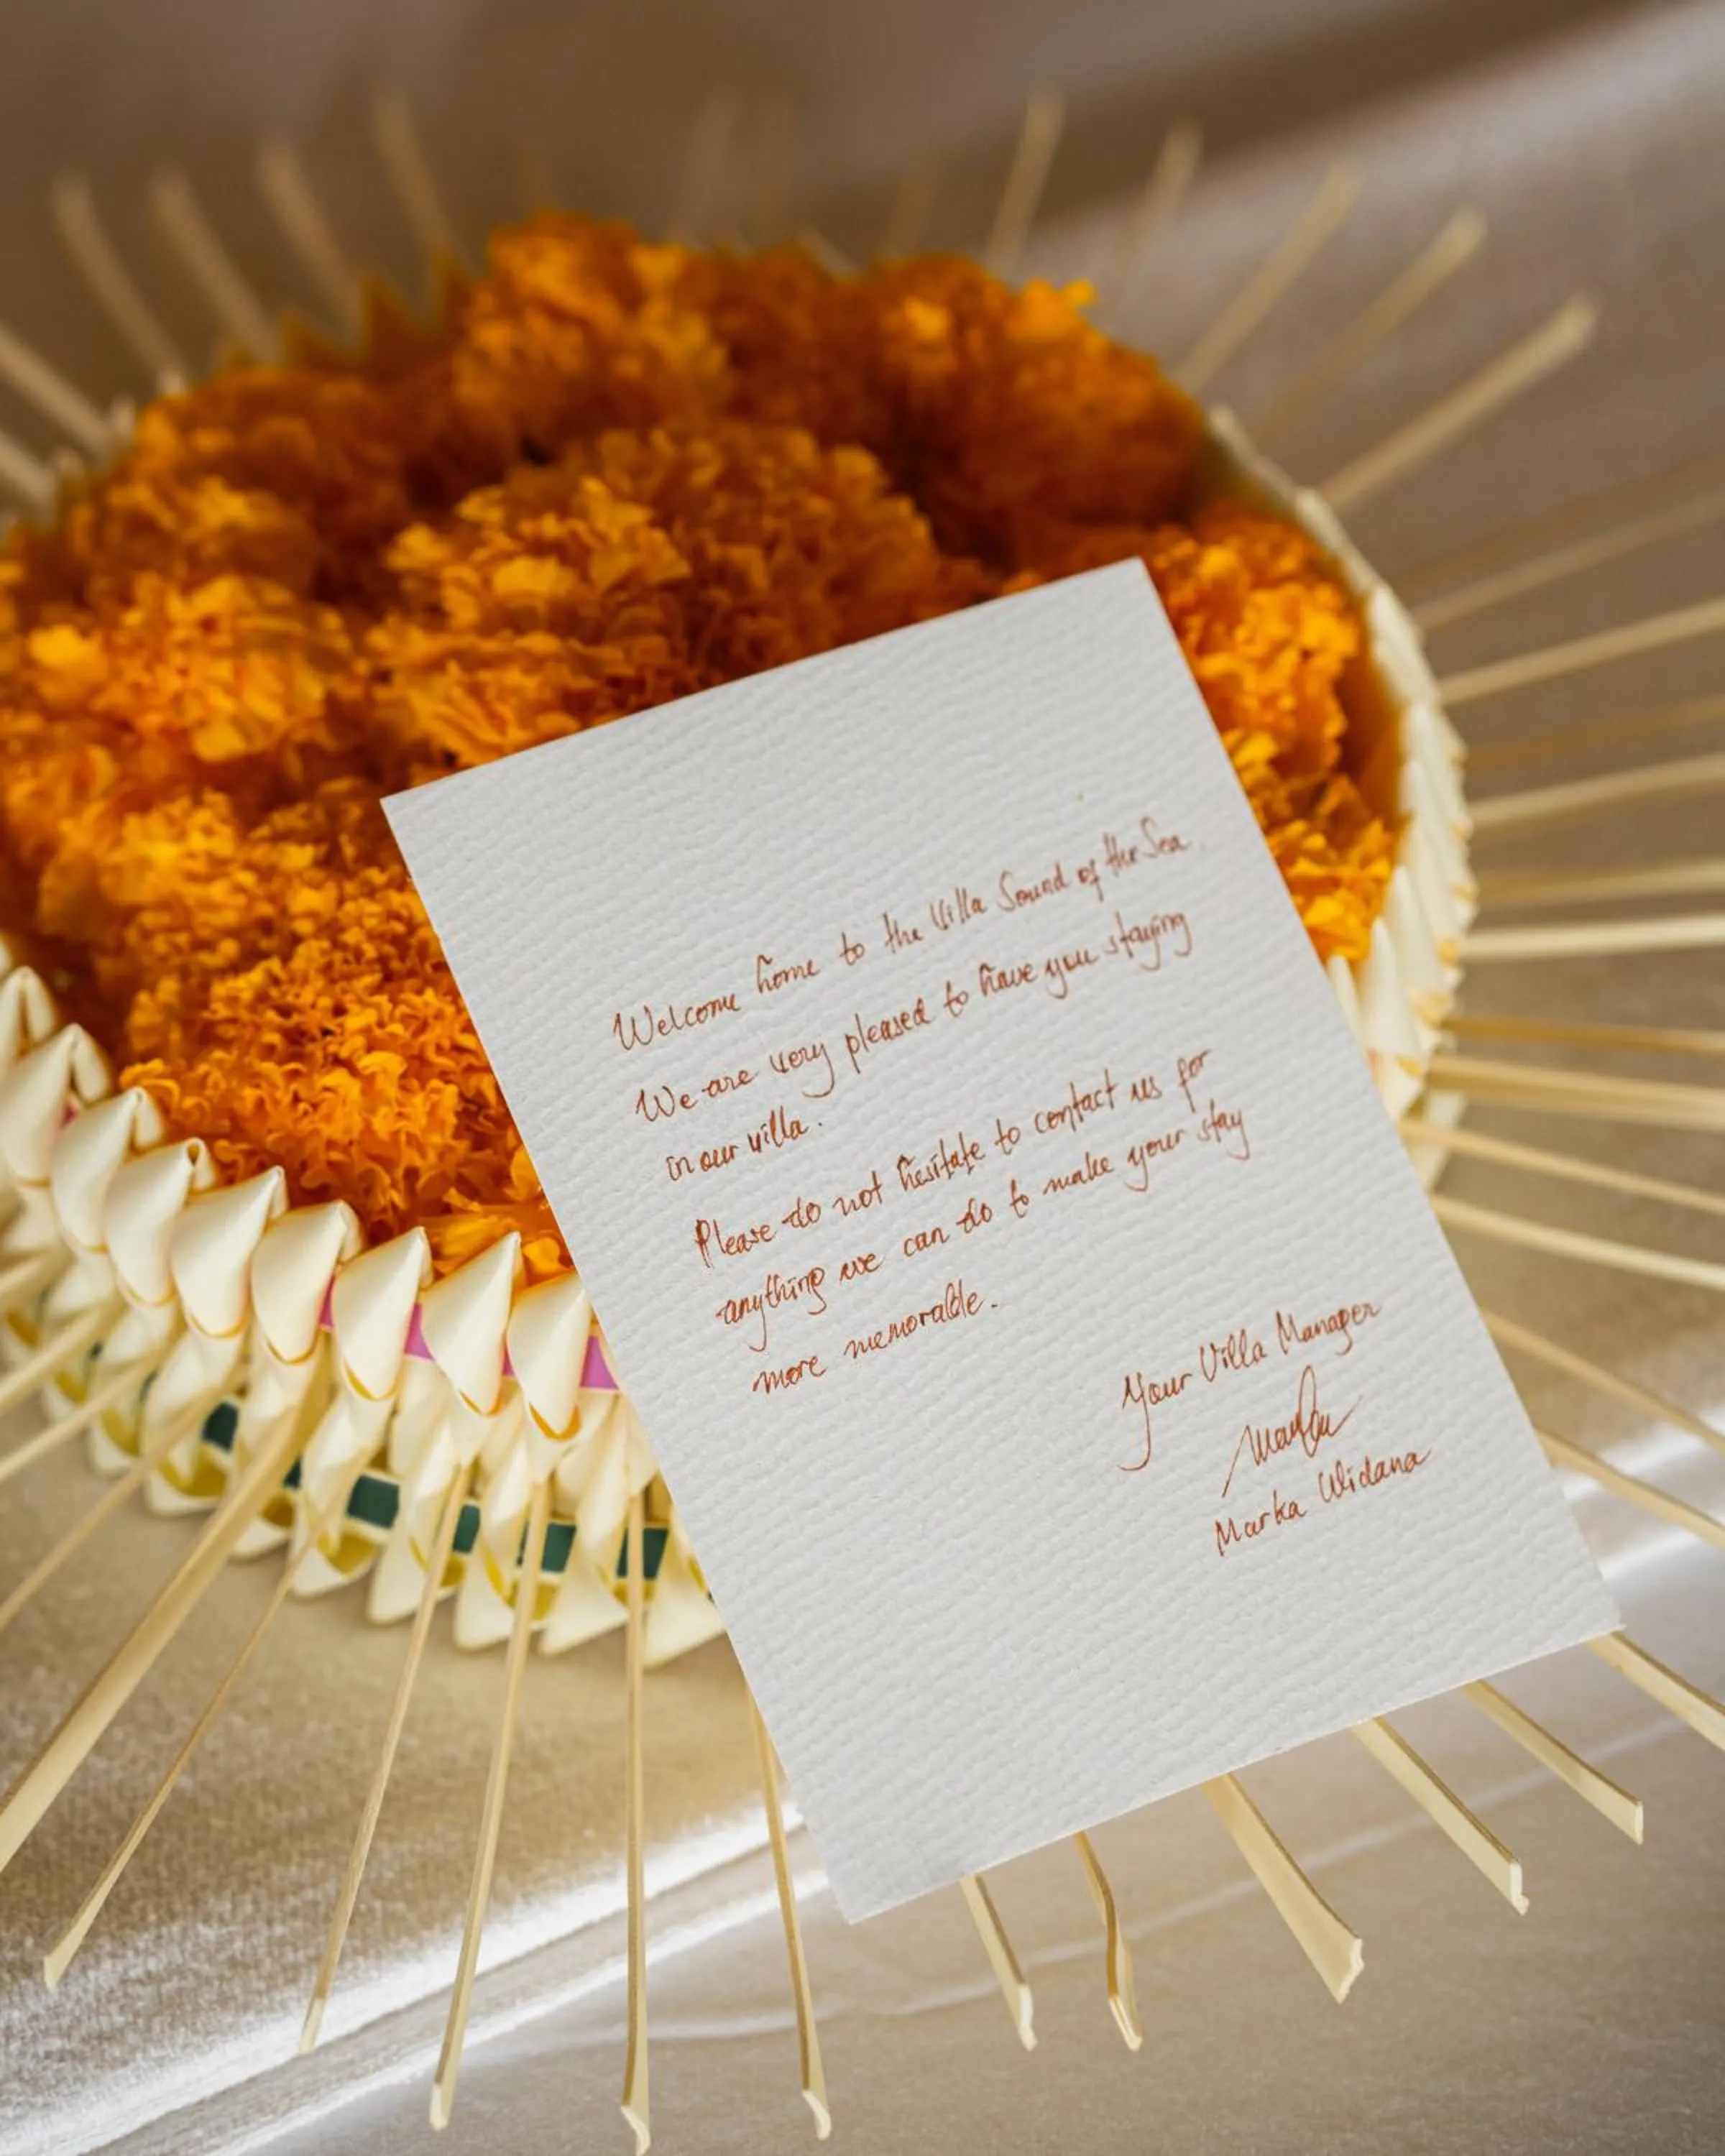 Welcome home to the Villa Sound of the Sea.
We are very pleased to have you staying
in our villa.
Please do not hesitate to contact us for
anything we can do to make your stay
more memorable.
Your Villa Manager
Marka Widana